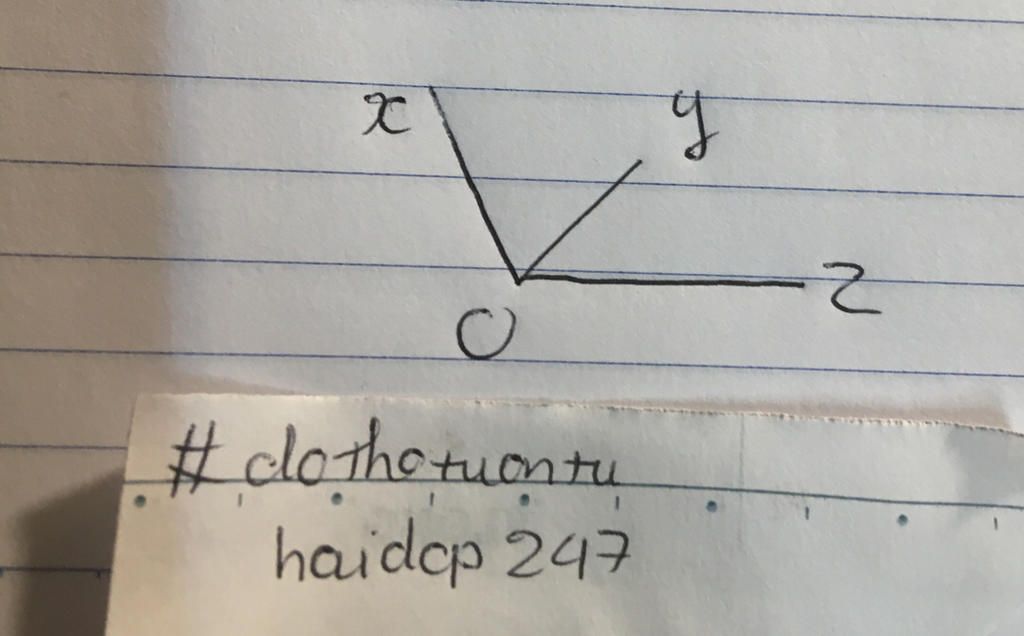 x
y
z
O
# dothotuontu
haidcp 247